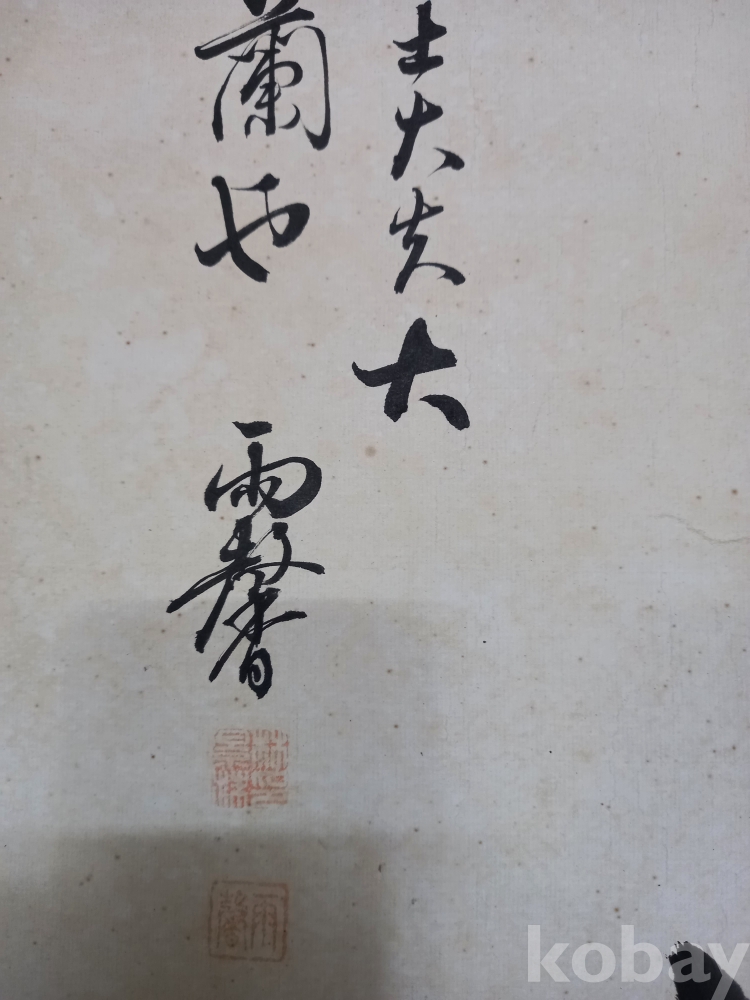 士大夫大
蘭也 雨馨
雨馨
kobay